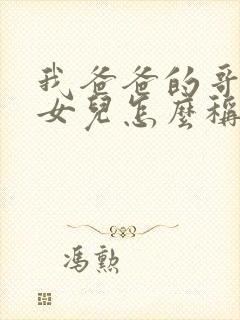 我爸爸的哥
女兒怎麼稱
馮勲